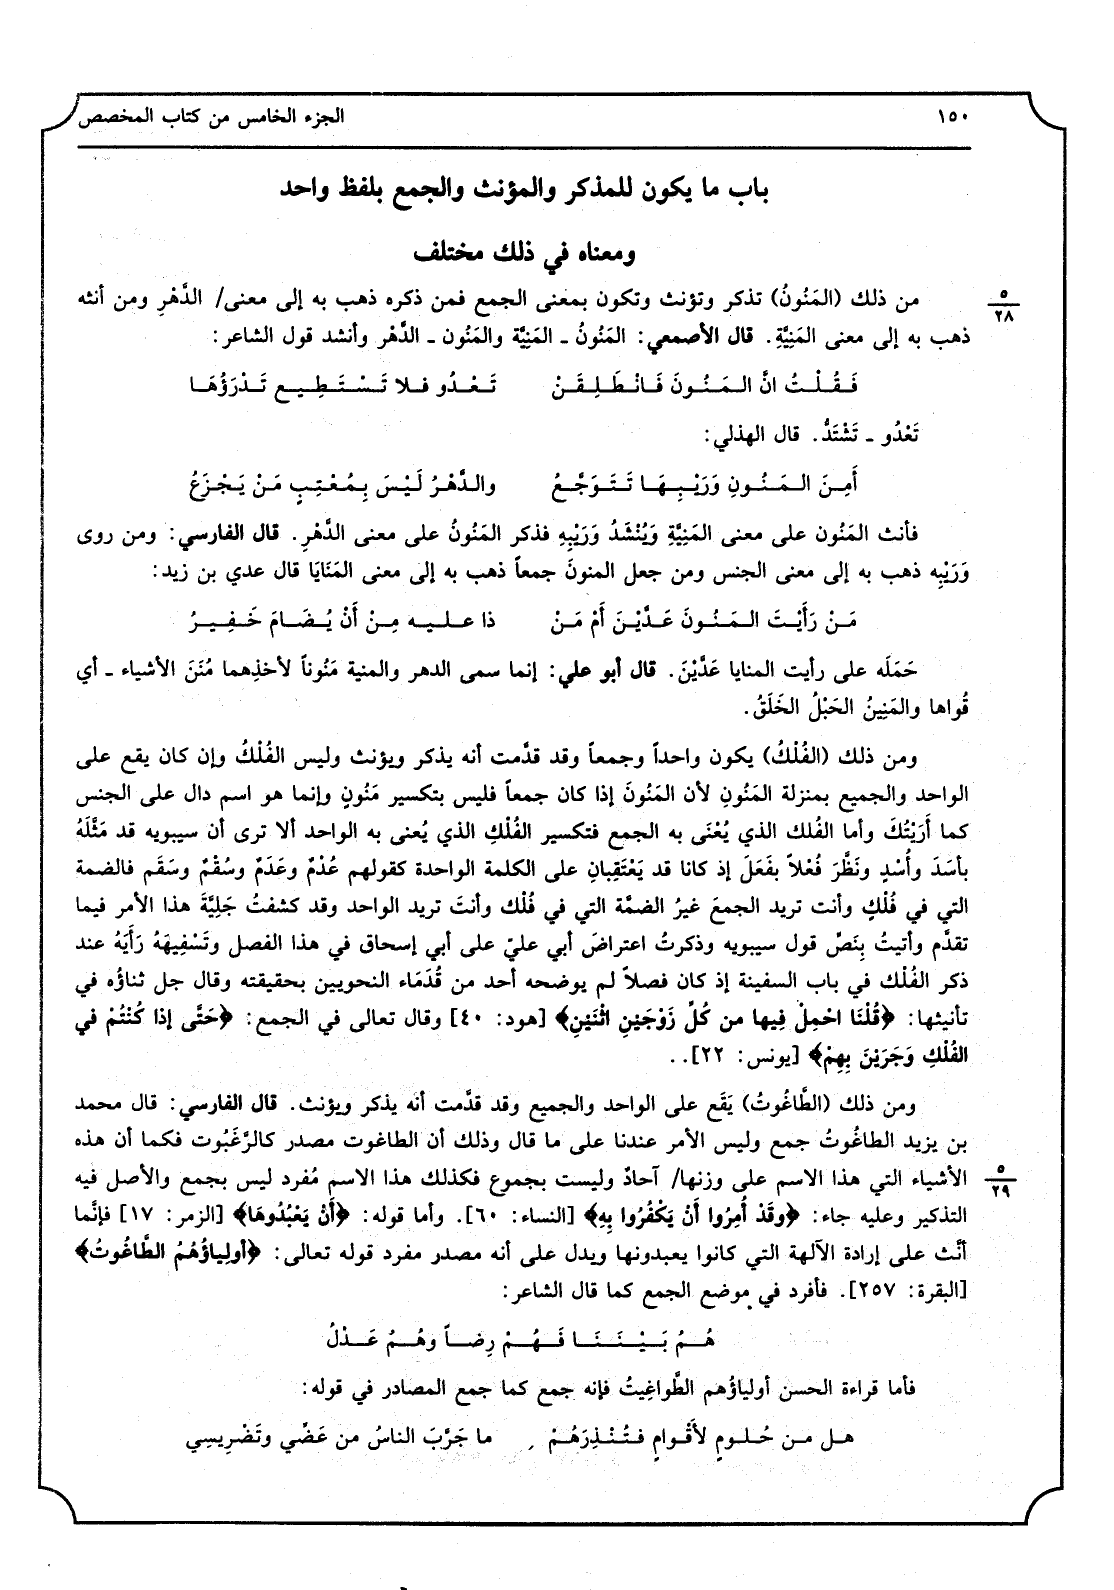 ١٥٠
الجزء الخامس من كتاب المخصص
باب ما يكون للمذكر والمؤنث والجمع بلفظ واحد
ومعناه في ذلك مختلف
٥
٢٨
من ذلك (المَنُونُ) تذكر وتؤنث وتكون بمعنى الجمع فمن ذكره ذهب به إلى معنى/ الدَّهْرِ ومن أنثه
ذهب به إلى معنى المَنِيَّةِ. قال الأصمعي: المَنُونُ ـ المَنِيَّة والمَنُون ـ الدَّهْر وأنشد قول الشاعر:
فَقُلْتُ انَّ المَنُونَ فَانْطَلِقَنْ تَعْدُو فلا تَسْتَطِيع تَدْرَؤُهَا
تَعْدُو ـ تَشْتَدُّ. قال الهذلي:
أَمِنَ المَنُونِ وَرَيْبِهَا تَتَوَجَّعُ والدَّهْرُ لَيْسَ بِمُعْتِبٍ مَنْ يَجْزَعُ
فأنث المَنُون على معنى المَنِيَّةِ وَيُنْشَدُ وَرَيْبِهِ فذكر المَنُونُ على معنى الدَّهْرِ. قال الفارسي: ومن روى
وَرَيْبِه ذهب به إلى معنى الجنس ومن جعل المنونَ جمعاً ذهب به إلى معنى المَنَايَا قال عدي بن زيد:
مَنْ رَأَيْتَ المَنُونَ عَدَّيْنَ أَمْ مَنْ ذا عليه مِنْ أَنْ يُضَامَ خَفِيرُ
حَمَلَه على رأيت المنايا عَدَّيْنَ. قال أبو علي: إنما سمى الدهر والمنية مَنُوناً لأخذِهما مُنَنَ الأشياء ـ أي
قُواها والمَنِينُ الحَبْلُ الخَلَقُ.
ومن ذلك (الفُلْكُ) يكون واحداً وجمعاً وقد قدَّمت أنه يذكر ويؤنث وليس الفُلْكُ وإن كان يقع على
الواحد والجميع بمنزلة المَنُونِ لأن المَنُونَ إذا كان جمعاً فليس بتكسير مَنُونٍ وإنما هو اسم دال على الجنس
كما أَرَيْتُكَ وأما الفُلك الذي يُعْنَى به الجمع فتكسير الفُلْكِ الذي يُعنى به الواحد ألا ترى أن سيبويه قد مَثَّلَهُ
بأسَدَ وأُسْدٍ ونَظَّرَ فُعْلاً بفَعَلَ إذ كانا قد يَعْتَقِبانِ على الكلمة الواحدة كقولهم عُدْمٌ وعَدَمٌ وسُقْمٌ وسَقَم فالضمة
التي في فُلْكٍ وأنت تريد الجمعَ غيرُ الضمَّة التي في فُلْك وأنتَ تريد الواحد وقد كشفتُ جَلِيَّةَ هذا الأمر فيما
تقدَّم وأتيتُ بِنَصِّ قول سيبويه وذكرتُ اعتراضَ أبي عليّ على أبي إسحاق في هذا الفصل وتَسْفِيهَهُ رَأيَهُ عند
ذكر الفُلْك في باب السفينة إذ كان فصلاً لم يوضحه أحد من قُدَمَاء النحويين بحقيقته وقال جل ثناؤه في
تأنيثها: ﴿قُلْنَا احْمِلْ فِيها من كُلِّ زَوْجَيْنِ اثْنَيْنِ﴾ [هود: ٤٠] وقال تعالى في الجمع: ﴿حَتَّى إذا كُنْتُمْ في
الفُلْكِ وَجَرَيْنَ بِهِمْ﴾ [يونس: ٢٢]..
ومن ذلك (الطَّاغُوتُ) يَقَع على الواحد والجميع وقد قدَّمت أنه يذكر ويؤنث. قال الفارسي: قال محمد
بن يزيد الطاغُوتُ جمع وليس الأمر عندنا على ما قال وذلك أن الطاغوت مصدر كالرَّغَبُوت فكما أن هذه
٥
٢٩
الأشياء التي هذا الاسم على وزنها/ آحادٌ وليست بجموع فكذلك هذا الاسم مُفرد ليس بجمع والأصل فيه
التذكير وعليه جاء: ﴿وقَدْ أُمِرُوا أَنْ يَكْفُرُوا بِهِ﴾ [النساء: ٦٠]. وأما قوله: ﴿أَنْ يَعْبُدُوهَا﴾ [الزمر: ١٧] فإنَّما
أنَّث على إرادة الآلهة التي كانوا يعبدونها ويدل على أنه مصدر مفرد قوله تعالى: ﴿أولِياؤُهُمُ الطَّاغُوتُ﴾
[البقرة: ٢٥٧]. فأفرد في موضع الجمع كما قال الشاعر:
هُمُ بَيْنَنَا فَهُمْ رِضاً وهُمُ عَدْلُ
فأما قراءة الحسن أولياؤُهم الطَّواغِيتُ فإنه جمع كما جمع المصادر في قوله:
هل من حُلومٍ لأَقْوامٍ فتُنْذِرَهُمْ ما جَرَّبَ الناسُ من عَضِّي وتَضْرِيسِي